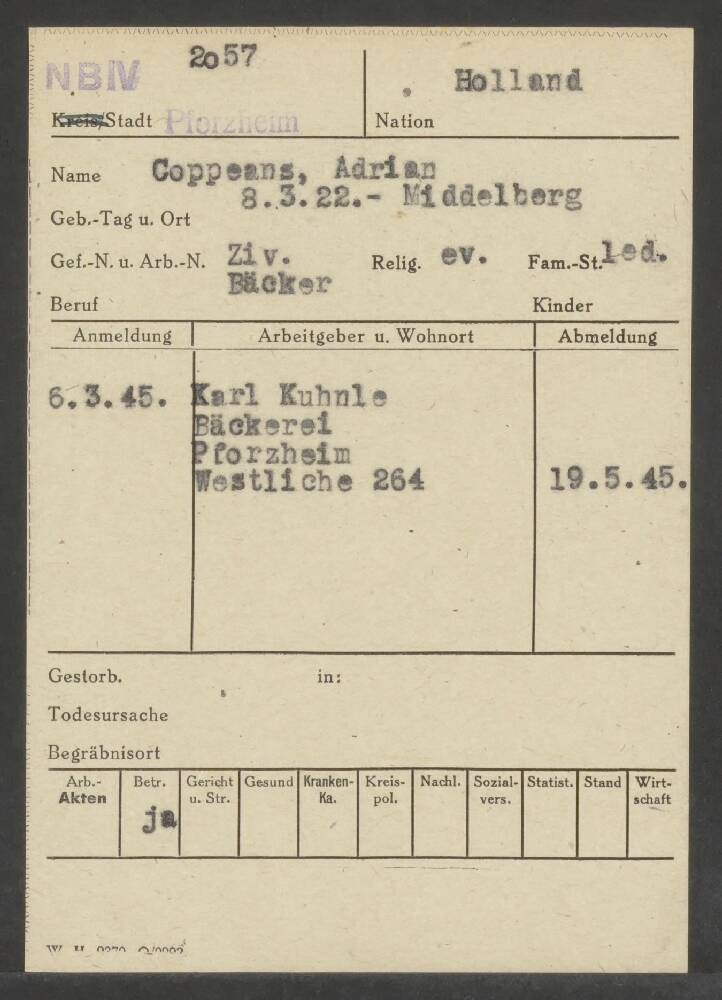 NBIV 2057
Holland
Kreis/Stadt Pforzheim
Nation
Name Coppeans, Adrian
8.3.22.- Middelberg
Geb.-Tag u. Ort
Gef.-N. u. Arb.-N. Ziv. Relig. ev. Fam.-St. led.
Bäcker
Beruf Kinder
Anmeldung Arbeitgeber u. Wohnort Abmeldung
6.3.45. Karl Kuhnle
Bäckerei
Pforzheim
Westliche 264 19.5.45.
Gestorb. in:
Todesursache
Begräbnisort
Arb.- Betr. Gericht Gesund Kranken- Kreis- Nachl. Sozial- Statist. Stand Wirt-
Akten u. Str. Ka. pol. vers. schaft
ja